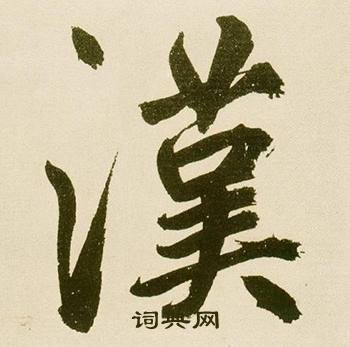 漢
词典网